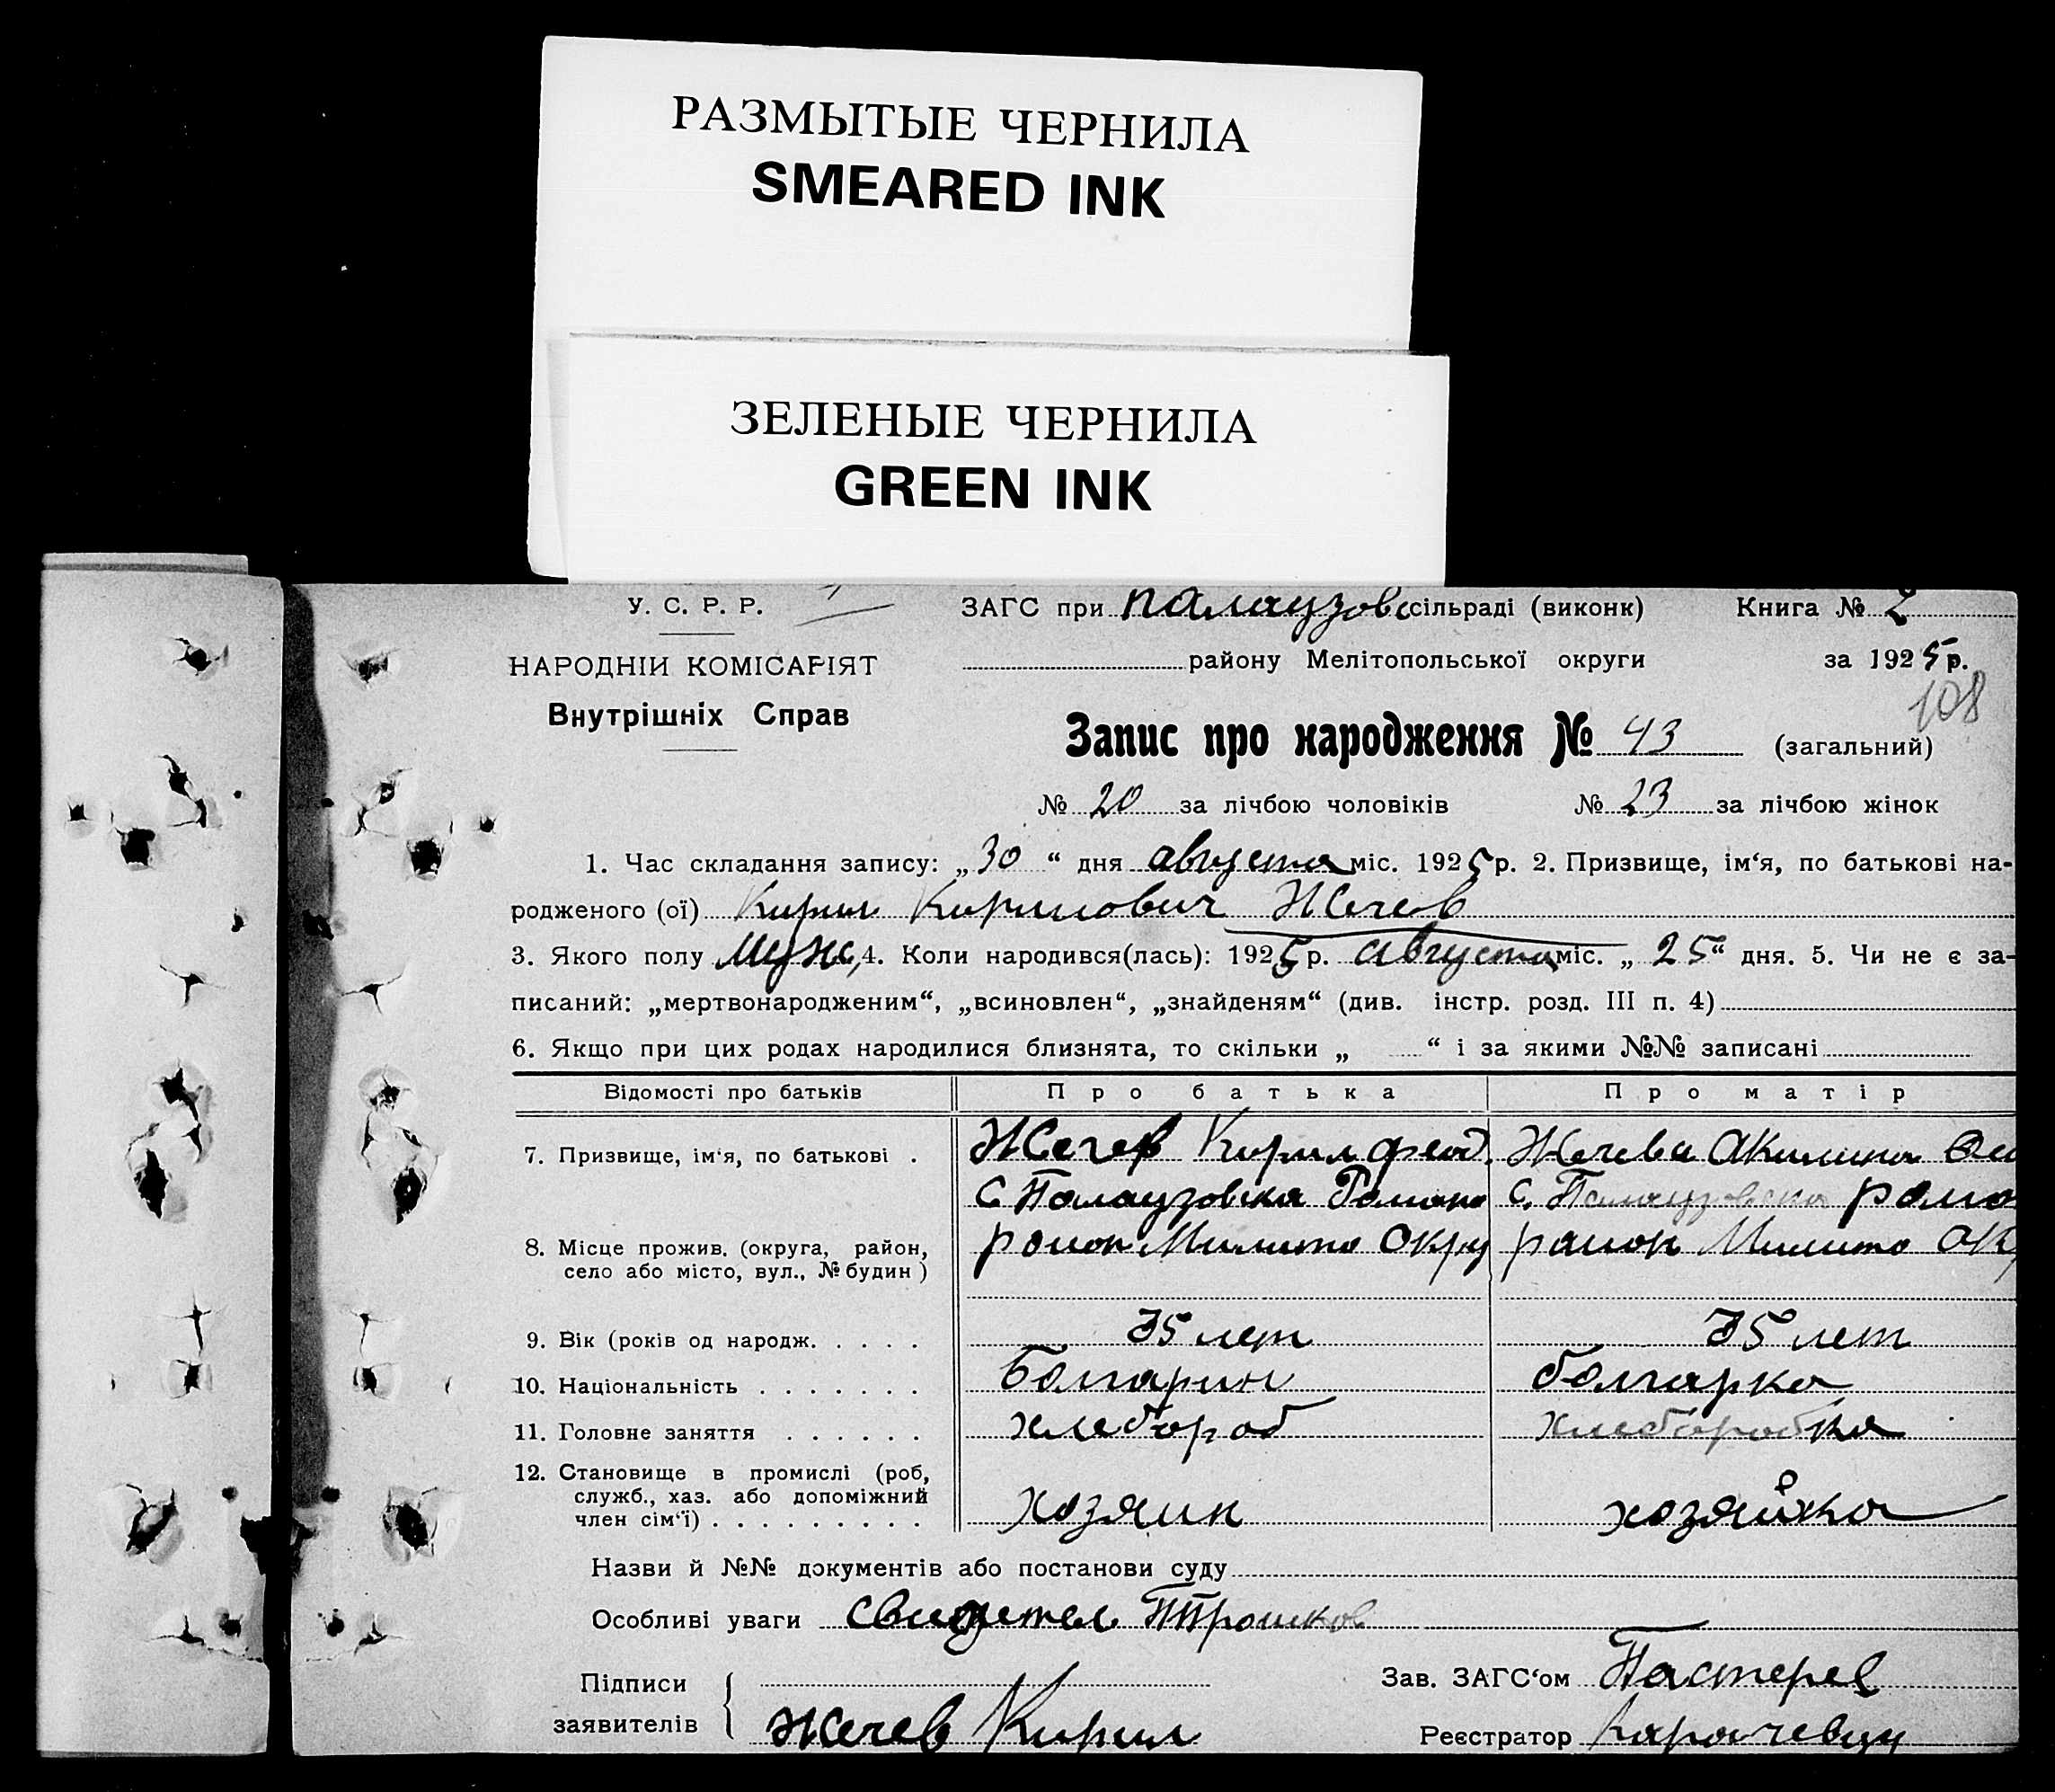 РАЗМЫТЫЕ ЧЕРНИЛА
SMEARED INK
ЗЕЛЕНЫЕ ЧЕРНИЛА
GREEN INK
У. С. Р. Р.
НАРОДНІЙ КОМІСАРІЯТ
Внутрішніх Справ
ЗАГС при Палаузовс сільраді (виконк) Книга № 2
району Мелітопольської округи за 1925 р.
108
Запис про народження № 43 (загальний)
№ 20 за лічбою чоловіків № 23 за лічбою жінок
1. Час складання запису: „30“ дня августа міс. 1925 р. 2. Призвище, ім‘я, по батькові на-
родженого (ої) Кирил Кирилович Жечев
3. Якого полу муж, 4. Коли народився(лась): 1925 р. августа міс. „25“ дня. 5. Чи не є за-
писаний: „мертвонародженим“, „всиновлен“, „знайденям“ (див. інстр. розд. III п. 4)
6. Якщо при цих родах народилися близнята, то скільки „ “ і за якими №№ записані
Відомості про батьків Про батька Про матір
7. Призвище, ім‘я, по батькові . Жечев Кирил феод. Жечева Акилина
с Палаузовка Романо с. Палаузовка
8. Місце прожив. (округа, район, район Милито Окру район Милито Ок
село або місто, вул., № будин)
9. Вік (років од народж. . . . . 35 лет 35 лет
10. Національність . . . . . . . Болгарин болгарка
11. Головне заняття . . . . . . хлебороб хлеборобка
12. Становище в промислі (роб,
служб., хаз. або допоміжний
член сім‘ї) . . . . . . . . . хозяин хозяйка
Назви й №№ документів або постанови суду
Особливі уваги свидетел Трошков
Підписи
заявителів Жечев Кирил
Зав. ЗАГС‘ом Пастерев
Реєстратор